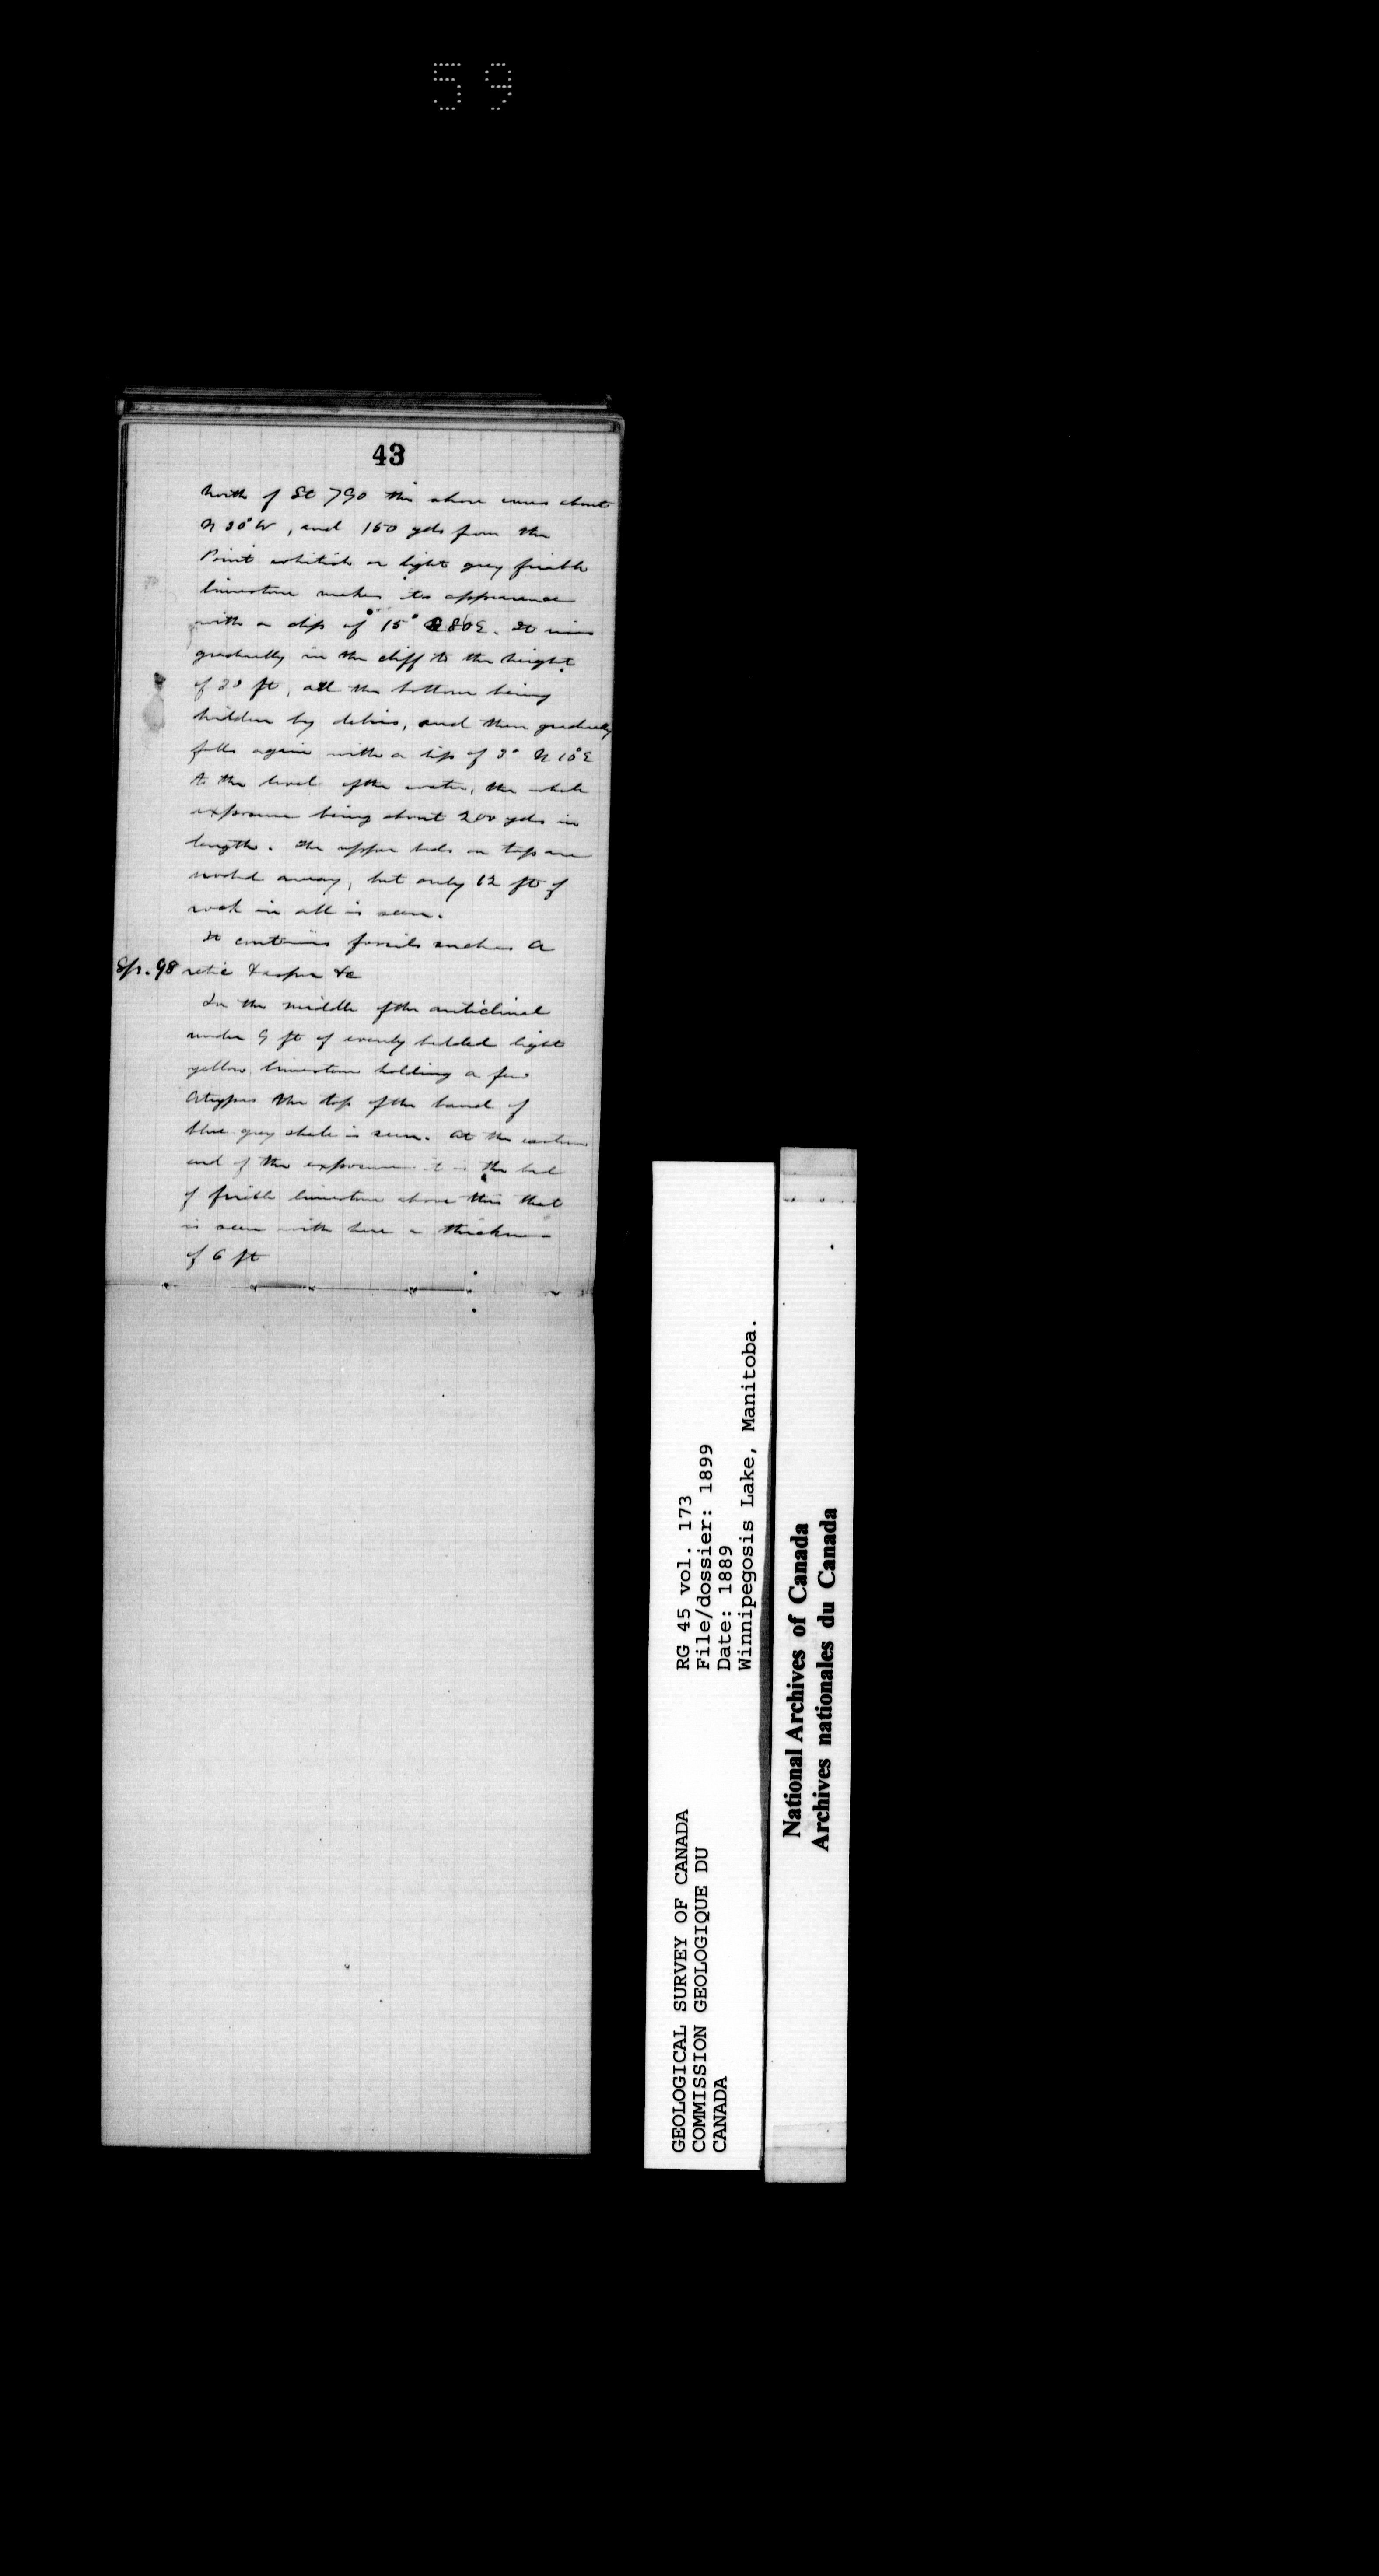 59
43
North of St 790 the shore runs about
N 30° W, and 150 yds from the
Point whitish or light grey friable
limestone makes its appearance
with a dip of 15° S 80 E. It rises
gradually in the cliff to the height
of 30 ft, all the bottom being
hidden by debris, and then gradually
falls again with a dip of 3° N 10° E
to the level of the water, the whole
exposure being about 200 yds in
length. The upper beds on top are
away, but only 12 ft of
rock in all is seen.
It contains fossils such as A
Sp. 98 retic &c
In the middle of the anticlinal
under 9 ft of evenly bedded light
yellow limestone holding a few
Atrypas the top of the band of
blue grey shale is seen. At the eastern
end of the exposure it is the bed
of frible limestone above this that
is seen with here a thickness
of 6 ft
GEOLOGICAL SURVEY OF CANADA
COMMISSION GEOLOGIQUE DU
CANADA
RG 45 vol. 173
File/dossier: 1899
Date: 1889
Winnipegosis Lake, Manitoba.
National Archives of Canada
Archives nationales du Canada